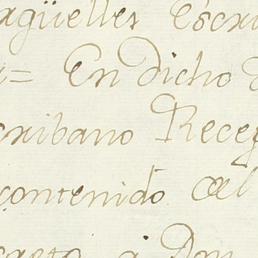 agüelles Escri
= En dicho
cribano Recep
contenido del
creto, a Don